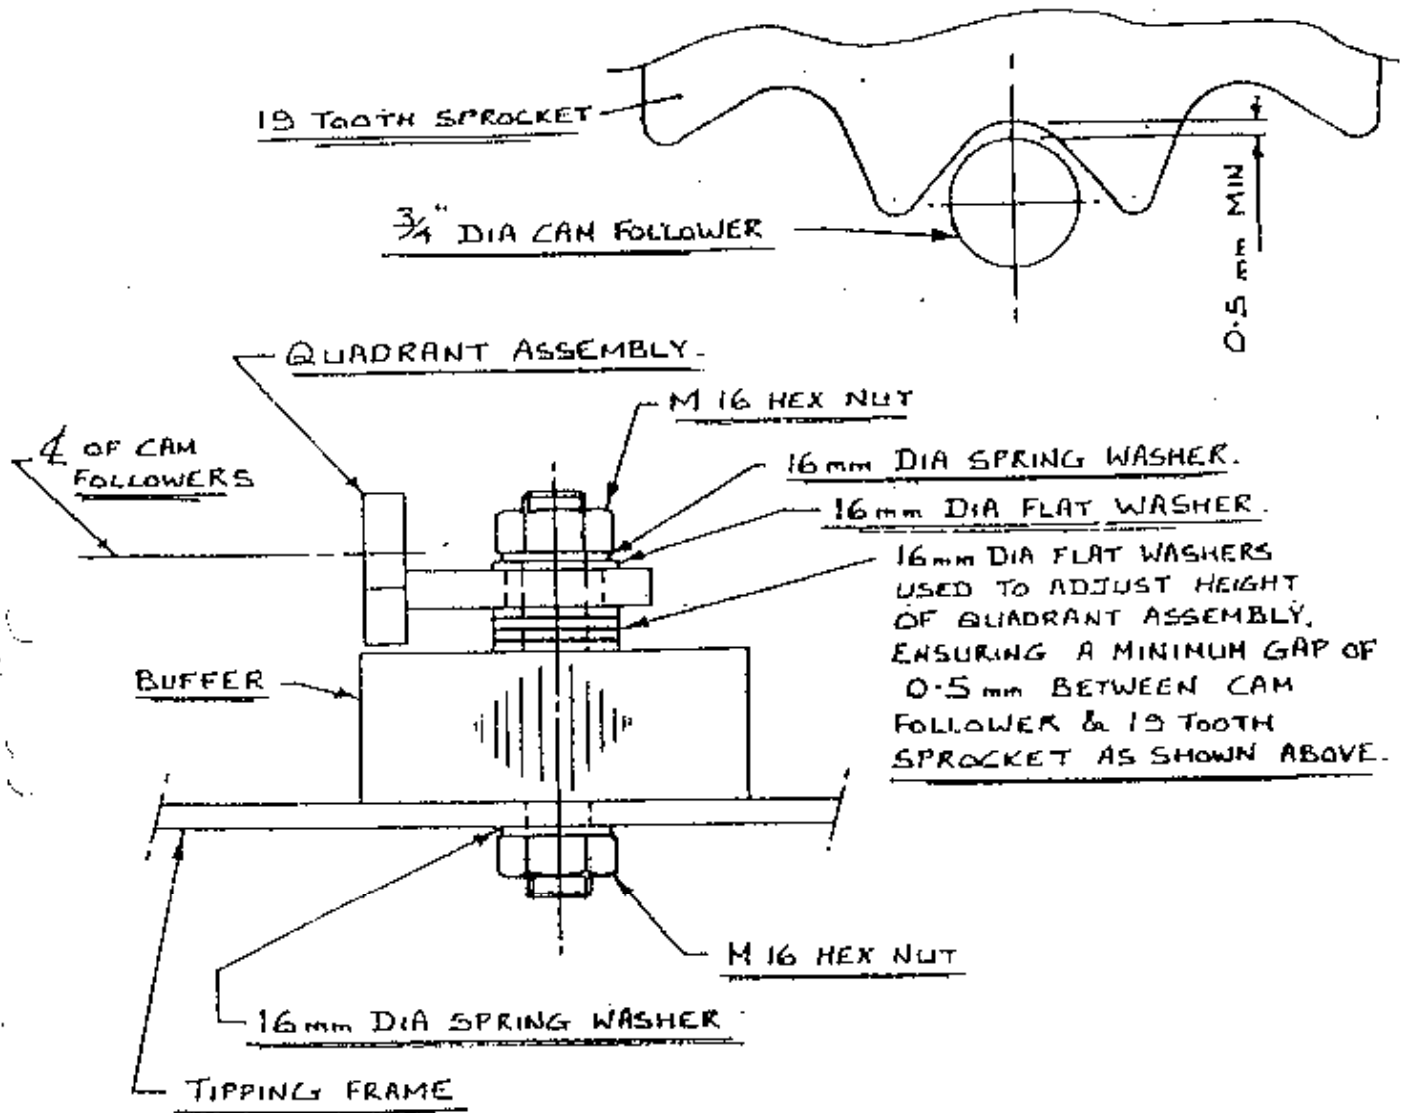 19 TOOTH SPROCKET
3/4" DIA CAM FOLLOWER
0.5 mm MIN
QUADRANT ASSEMBLY.
M 16 HEX NUT
℄ OF CAM
FOLLOWERS
16mm DIA SPRING WASHER.
16mm DIA FLAT WASHER.
16mm DIA FLAT WASHERS
USED TO ADJUST HEIGHT
OF QUADRANT ASSEMBLY,
ENSURING A MINIMUM GAP OF
0.5 mm BETWEEN CAM
FOLLOWER & 19 TOOTH
SPROCKET AS SHOWN ABOVE.
BUFFER
M 16 HEX NUT
16mm DIA SPRING WASHER
TIPPING FRAME